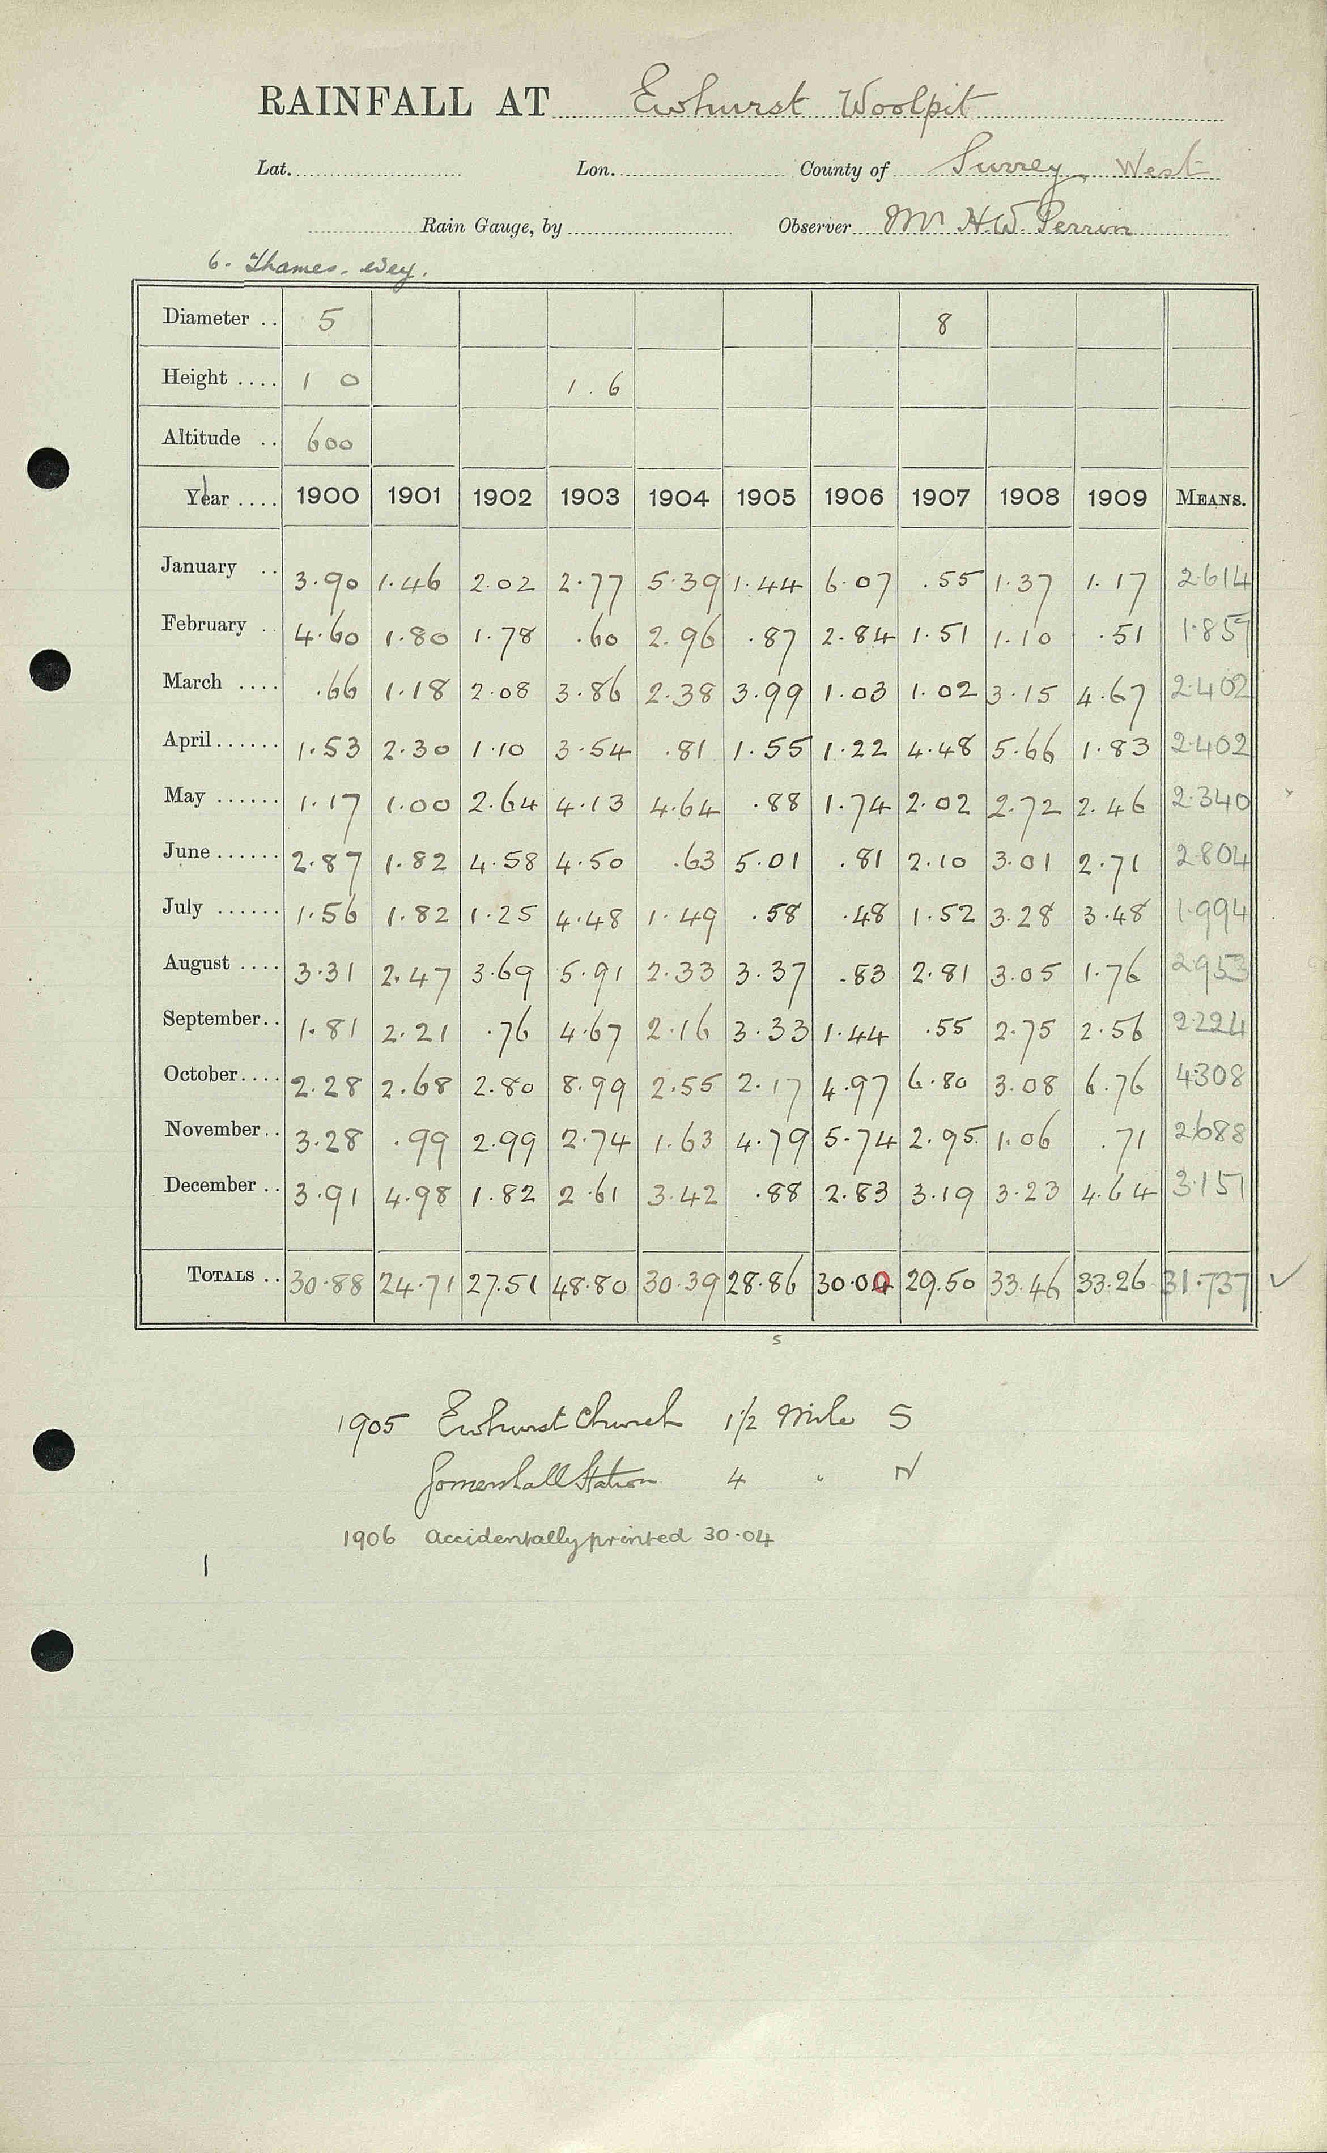 RAINFALL AT Ewhurst Woolpit
Lat. Lon. County of Surrey, West
Rain Gauge, by Observer Mr H.W. Perron
6. Thames. Wey.
Diameter .. 5 8
Height .... 1 0 1.6
Altitude .. 600
Year .... 1900 1901 1902 1903 1904 1905 1906 1907 1908 1909 MEANS.
January .. 3.90 1.46 2.02 2.77 5.39 1.44 6.07 .55 1.37 1.17 2.614
February .. 4.60 1.80 1.78 .60 2.96 .87 2.84 1.51 1.10 .51 1.857
March .... .66 1.18 2.08 3.86 2.38 3.99 1.03 1.02 3.15 4.67 2.402
April...... 1.53 2.30 1.10 3.54 .81 1.55 1.22 4.48 5.66 1.83 2.402
May ...... 1.17 1.00 2.64 4.13 4.64 .88 1.74 2.02 2.72 2.46 2.340
June ...... 2.87 1.82 4.58 4.50 .63 5.01 .81 2.10 3.01 2.71 2.804
July ...... 1.56 1.82 1.25 4.48 1.49 .58 .48 1.52 3.28 3.48 1.994
August .... 3.31 2.47 3.69 5.91 2.33 3.37 .83 2.81 3.05 1.76 2.953
September.. 1.81 2.21 .76 4.67 2.16 3.33 1.44 .55 2.75 2.56 2.224
October.... 2.28 2.68 2.80 8.99 2.55 2.17 4.97 6.80 3.08 6.76 4.308
November.. 3.28 .99 2.99 2.74 1.63 4.79 5.74 2.95 1.06 .71 2.688
December .. 3.91 4.98 1.82 2.61 3.42 .88 2.83 3.19 3.23 4.64 3.151
TOTALS .. 30.88 24.71 27.51 48.80 30.39 28.86 30.00 29.50 33.46 33.26 31.737 ✓
s
1905 Ewhurst Church 1½ Mile S
Gomershall Station 4 " N
1906 Accidentally printed 30.04